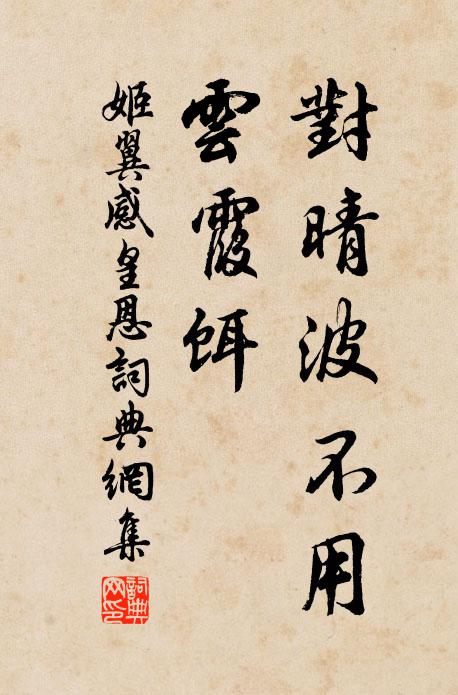 對晴波不用
雲霞餌
姬翼感皇恩詞典網集
詞典
网印